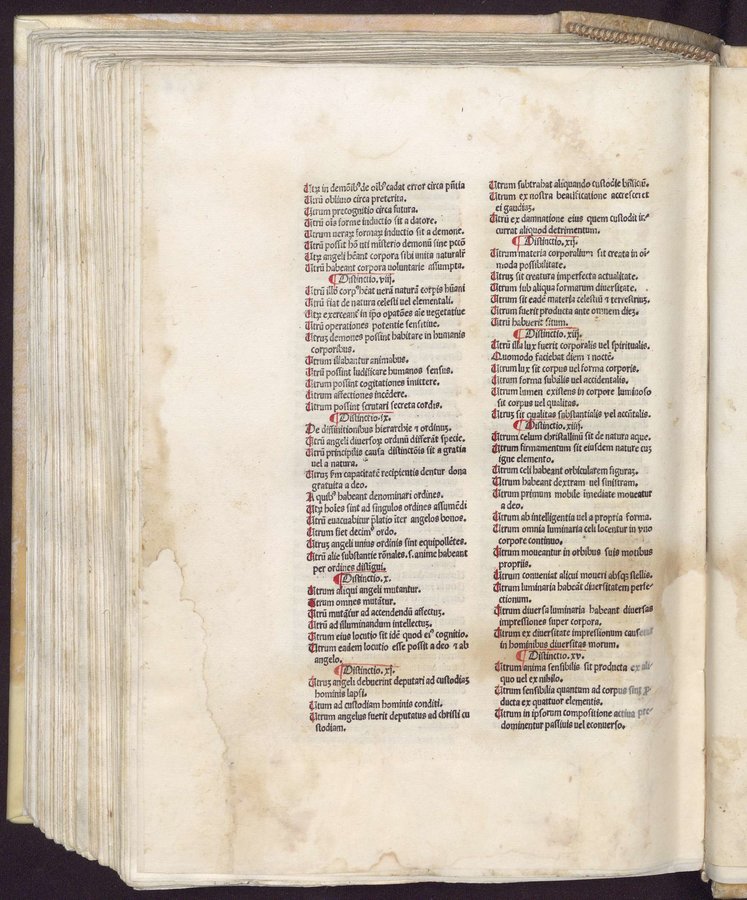 Utrũ in demõib⁹ de oib⁹ cadat error circa pñtia
Utrũ obliuio circa preterita.
Utrum precognitio circa futura.
Utrũ ois forme inductio sit a datore.
Utrum uerarꝝ formarꝝ inductio sit a demone.
Utrũ possit hõ uti misterio demonũ sine pccõ
Utrꝝ angeli hẽant corpora sibi unita naturalr̃
Utrũ habeant corpora uoluntarie assumpta.
Distinctio. viij.
Utrũ illd̃ corp⁹ hẽat uerã naturã corpis hũani
Utrũ fiat de natura celesti uel elementali.
Utrꝝ exerceant̃ in ip̃o opatões aĩe vegetatiue
Utrũ operationes potentie sensitiue.
Utruꝫ demones possint habitare in humanis
corporibus.
Utrum illabantur animabus.
Utrũ possint ludificare humanos sensus.
Utrum possint cogitationes ĩmittere.
Utrum affectiones incẽdere.
Utrum possint scrutari secreta cordis.
Distinctio. ix.
De diffinitionibus hierarchie ⁊ ordinuꝫ.
Utrũ angeli diuersoꝝ ordinũ differãt specie.
Utrũ principalis causa distinctõis sit a gratia
uel a natura.
Utruꝫ ẜm capacitatẽ recipientis dentur dona
gratuita a deo.
A quib⁹ habeant denominari ordines.
Utrꝝ hoĩes sint ad singulos ordines assumẽdi
Utrũ euacuabitur p̃latio ĩter angelos bonos.
Utrum fiet decim⁹ ordo.
Utruꝫ angeli unius ordinis sint equipollẽtes.
Utrũ alie substantie rõnales. s. anime habeant
per ordines distĩgui.
Distinctio. x.
Utrum aliqui angeli mutantur.
Utrum omnes mutãtur.
Utrũ mutãtur ad accendendũ affectuꝫ.
Utrũ ad illuminandum intellectuꝫ.
Utrum eius locutio sit idẽ quod ei⁹ cognitio.
Utrum eadem locutio esse possit a deo ⁊ ab
angelo.
Distinctio. xj.
Utruꝫ angeli debuerint deputari ad custodiaꝫ
hominis lapsi.
Utum ad custodiam hominis conditi.
Utrum angelus fuerit deputatus ad christi cu
stodiam.
Utrum subtrahat aliquando custodie
Utrum ex nostra beatificatione accresceret
ei gaudiuꝫ.
Utrũ ex damnatione eius quem custodit in⸗
currat aliquod detrimentum.
Distinctio. xij.
Utrum materia corporalium sit creata in oĩ⸗
moda possibilitate.
Utruꝫ sit creatura imperfecta actualitate.
Utrum sub aliqua formarum diuersitate.
Utrum sit eadẽ materia celestiũ ⁊ terrestriuꝫ.
Utrum fuerit producta ante omnem dieꝫ.
Utrũ habuerit situm.
Distinctio. xiij.
Utrũ illa lux fuerit corporalis vel spiritualis.
Quomodo faciebat diem ⁊ noctẽ.
Utrum lux sit corpus uel forma corporis.
Utrum forma subãlis uel accidentalis.
Utrum lumen existens in corpore luminoso
sit corpus vel qualitas.
Utruꝫ sit qualitas substantialis vel accñtalis.
Distinctio. xiiij.
Utrum celum christallinũ sit de natura aque.
Utrum firmamentum sit eiusdem nature cuꝫ
igne elemento.
Utrum celi habeant orbicularem figuraꝫ.
Utrum habeant dextram uel sinistram.
Utrum primum mobile ĩmediate moueatur
a deo.
Utrum ab intelligentia uel a propria forma.
Utrum omnia luminaria celi locentur in vno
corpore continuo.
Utrum moueantur in orbibus suis motibus
propriis.
Utrum conueniat alicui moueri absqꝫ stellis.
Utrum luminaria habeãt diuersitatem perfe⸗
ctionum.
Utrum diuersa luminaria habeant diuersas
impressiones super corpora.
Utrum ex diuersitate impressionum causetur
in hominibus diuersitas morum.
Distinctio. xv.
Utrum anima sensibilis sit producta ex ali⸗
quo uel ex nihilo.
Utrum sensibilia quantum ad corpus sint ꝓ
ducta ex quattuor elementis.
Utrum in ipsorum compositione actiua pre⸗
dominentur passiuis uel econuerso.